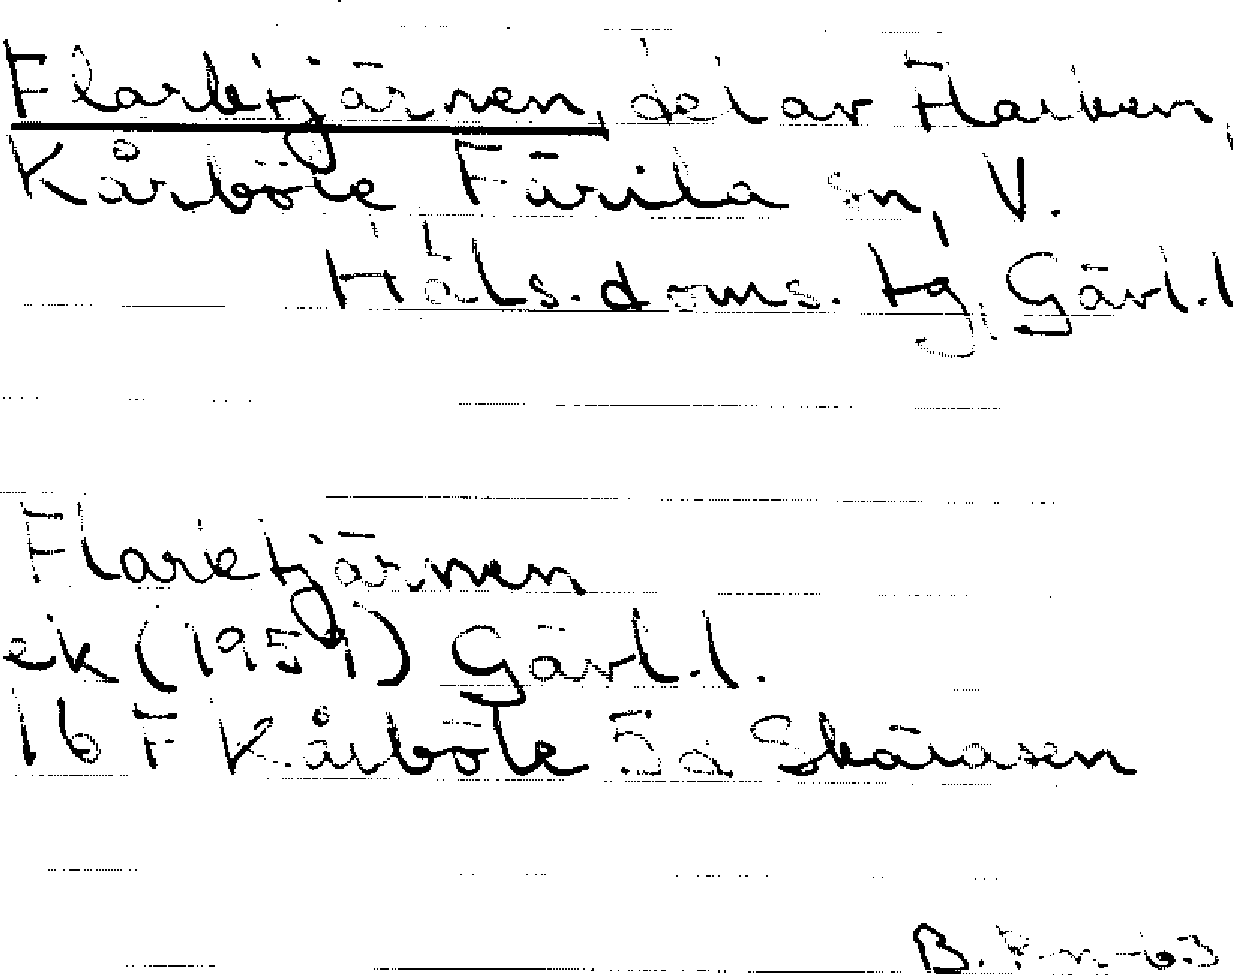 Flarktjärnen, del av Flarken,
Kårböle Färila sn, V.
Häls. doms. tg, Gävl. l
Flarktjärnen
ek (1959) Gävl. l.
16 F Kårböle 5d Skäråsen
B. -63